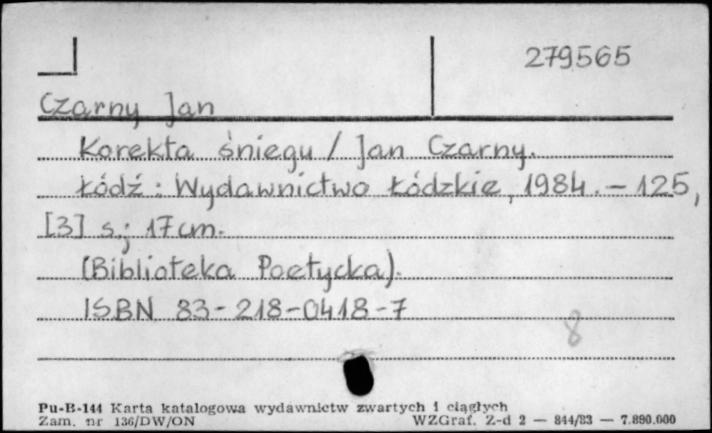 279565
Czarny Jan
Korekta śniegu / Jan Czarny.
Łódź : Wydawnictwo Łódzkie, 1984. – 125,
[3] s.; 17 cm.
(Biblioteka Poetycka).
ISBN 83-218-0418-7
8
Pu-B-144 Karta katalogowa wydawnictw zwartych i ciągłych
Zam. nr 136/DW/ON WZGraf. Z-d 2 — 844/83 — 7.890.000